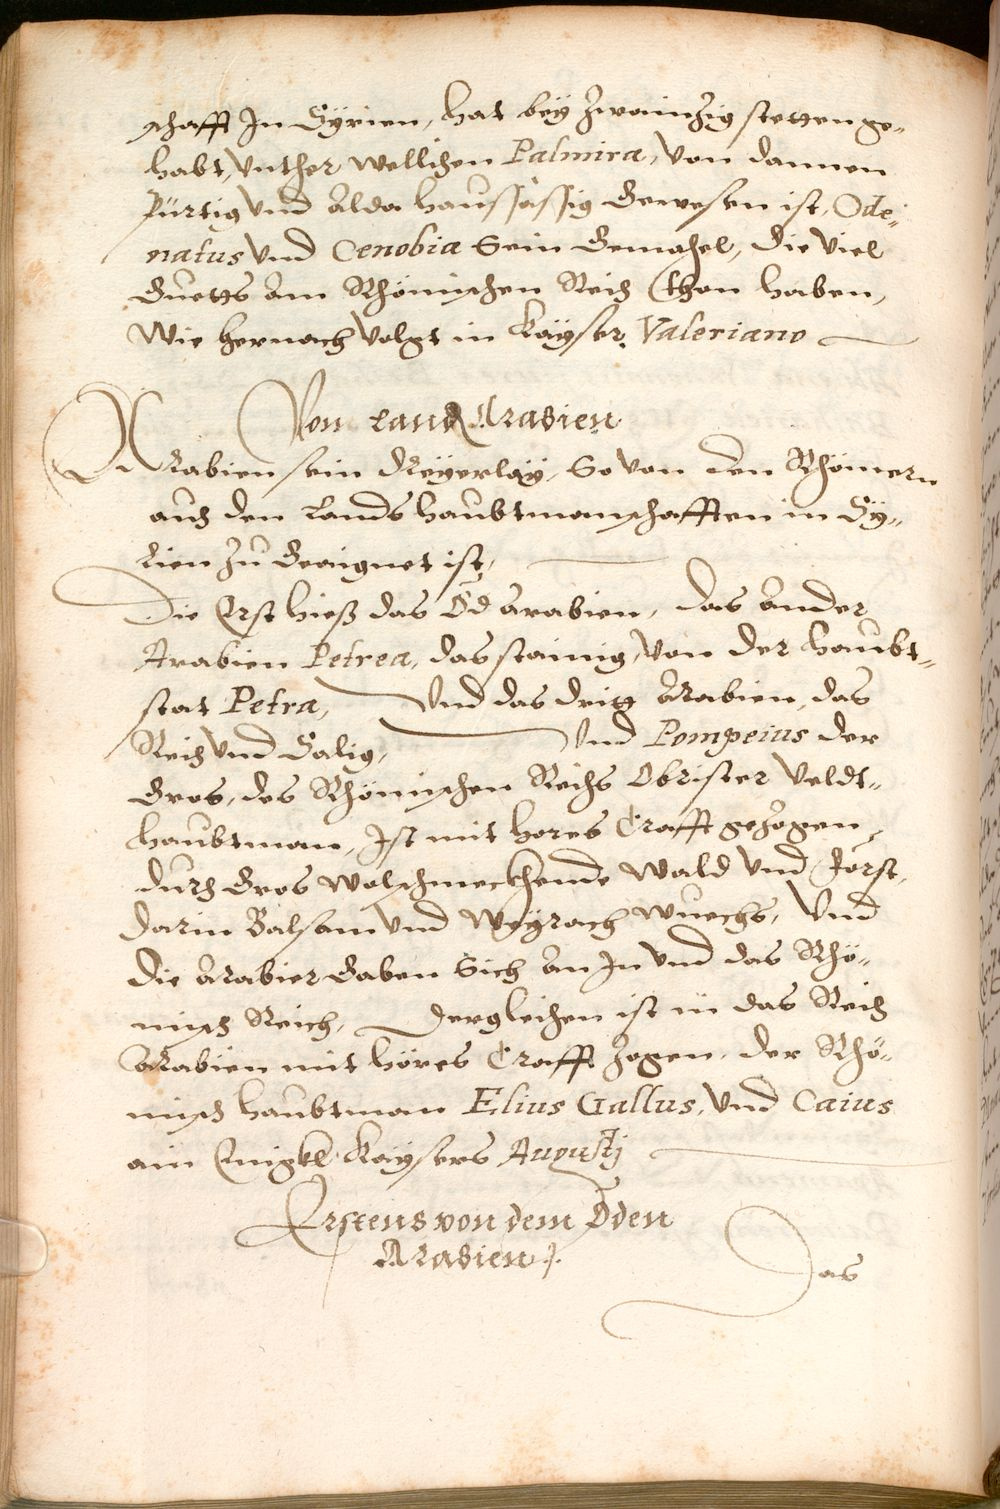 schafft In Syrien, hat bey zwainzig stetten ge-
habt, Unther wellichen Palmira, von dannen
pürtig und alda haussässig Gewesen ist, Ode-
natus und Cenobia Sein Gemahel, die viel
Guetts am Rhömischen Reich thon haben,
Wie hernach volgt in Kayser Valeriano
Von Land Arabien
Arabien sein dreyerlay, So von den Rhömern
auch den Lands haubtmanschafften in Sy-
rien zu Geaignet ist,
Die Erst hieß das Öd arabien, das ander
Arabien Petrea, das stainig, von der haubt-
stat Petra, Und das dritt arabien, das
Reich und Salig, Und Pompeius der
Gros, des Rhömischen Reichs Obrister Veldt-
haubtman, Ist mit hores Crafft gezogen
durch Gros wolschmeckhende wald und Forst,
darin Balsam und Weyrach wuechs, Und
die arabier Gaben Sich an In und das Rhö-
misch Reich, Dergleichen ist in das Reich
Arabien mit höres Crafft zogen, der Rhö-
misch haubtman Elius Gallus, und Caius
ain Enigkl Kaysers Augustj
Erstens von dem Öden
Arabien.
Das